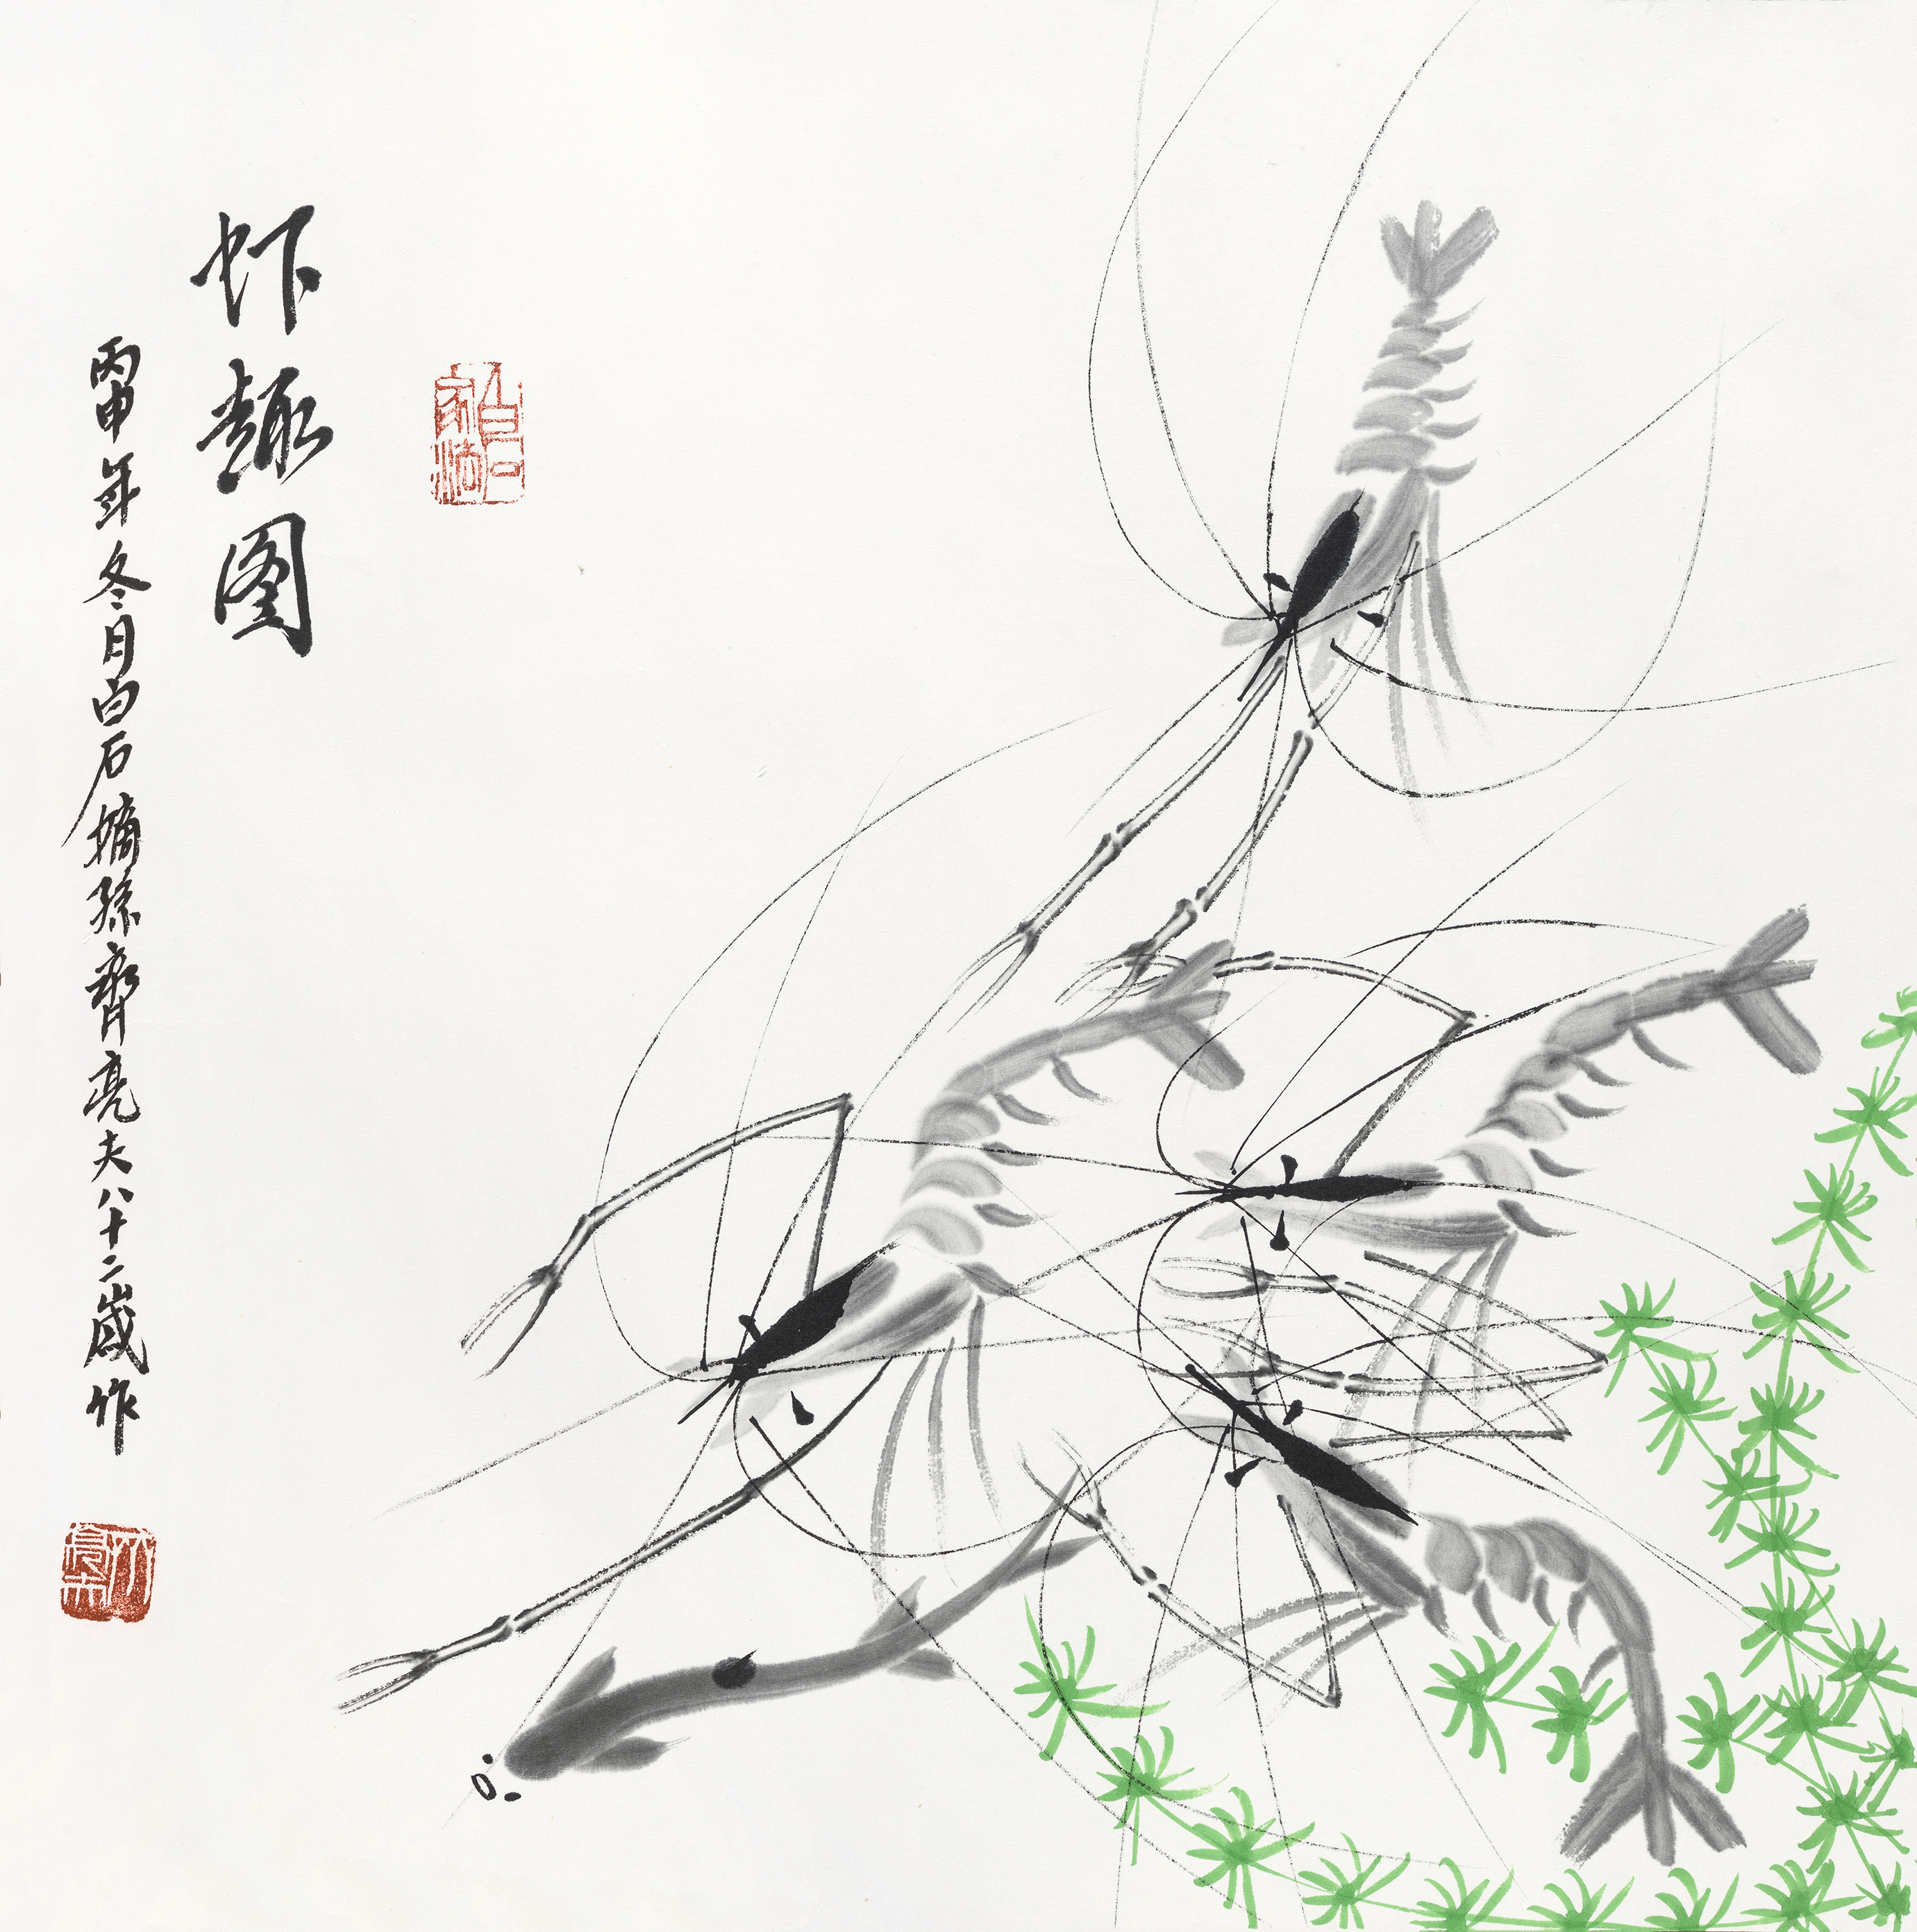 虾趣图
丙申年冬月白石嫡孙齐亮夫八十二岁作